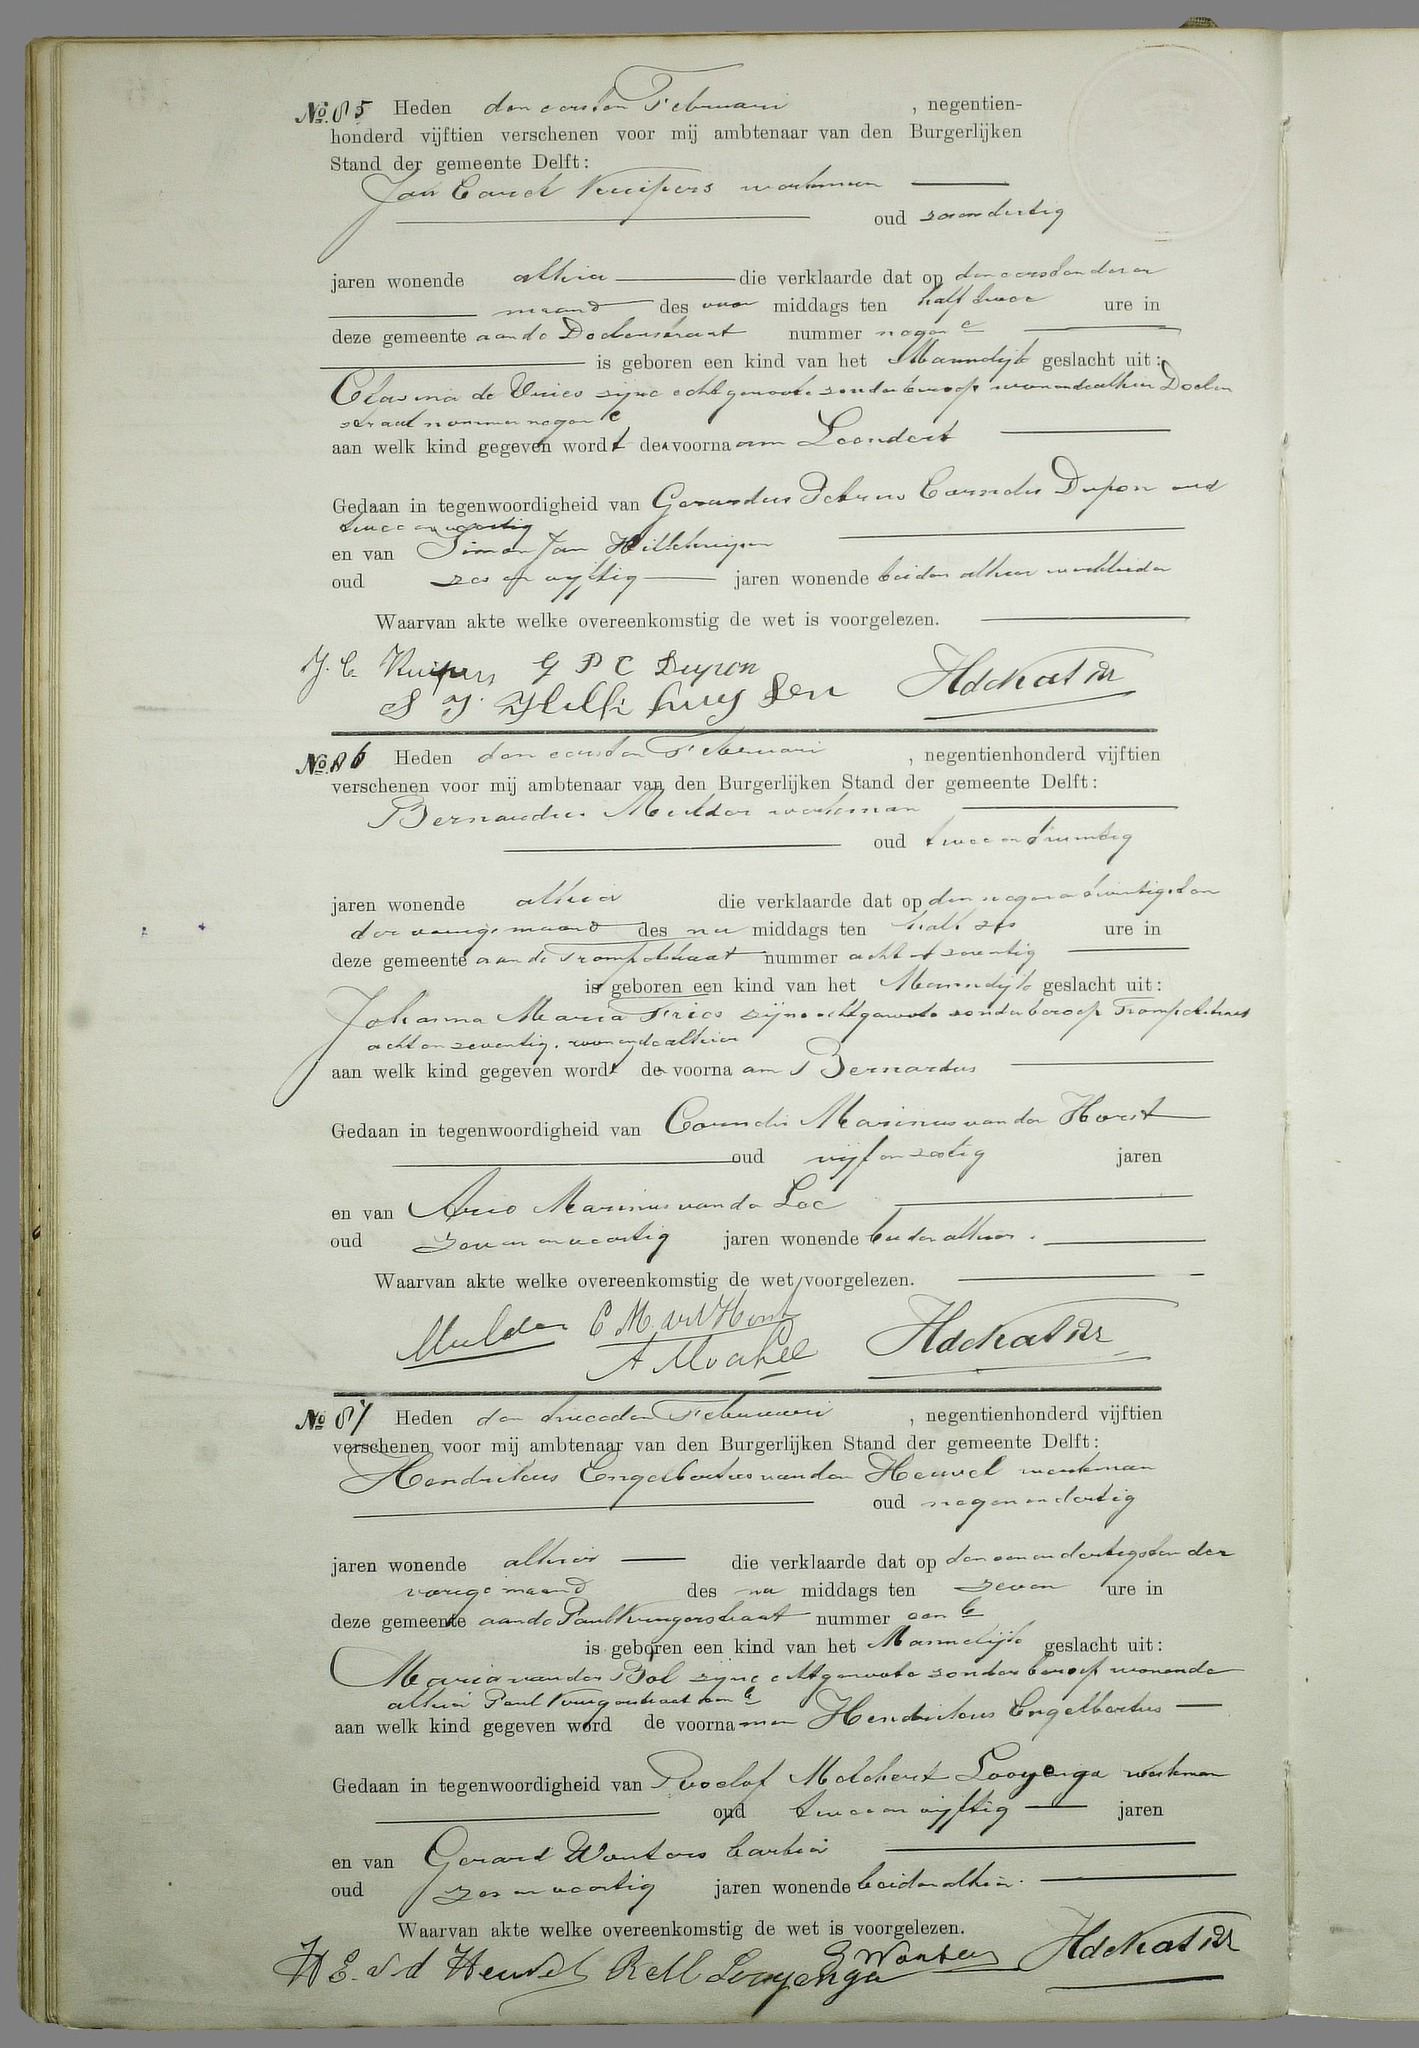 No. 85 Heden den eersten Februari , negentien-
honderd vijftien verschenen voor mij ambtenaar van den Burgerlijken
Stand der gemeente Delft:
Jan Carel Kuipers werkman
oud
jaren wonende alhier die verklaarde dat op den eersten dezer
maand des voor middags ten half twee ure in
deze gemeente aan de Doelenstraat nummer negen c
is geboren een kind van het Mannelijk geslacht uit:
Clasina de Vries zijne echtgenoote zonder beroep wonende alhier Doelen
straat nummer negen c
aan welk kind gegeven wordt de voornaam Leendert
Gedaan in tegenwoordigheid van Gerardus Petrus Cornelis Dupon oud
twee en veertig
en van Simon Jan Hillehuijsen
oud zes en vijftig jaren wonende beiden alhier werklieden
Waarvan akte welke overeenkomstig de wet is voorgelezen.
J. C. Kuipers G P C Dupon
S J. Hillehuysen
No. 86 Heden den eersten Februari , negentienhonderd vijftien
verschenen voor mij ambtenaar van den Burgerlijken Stand der gemeente Delft:
Bernardus Mulder werkman
oud twee en twintig
jaren wonende alhier die verklaarde dat op den negen en twintigsten
der vorige maand des na middags ten half zes ure in
deze gemeente aan de Trompetstraat nummer acht en zeventig
is geboren een kind van het Mannelijk geslacht uit:
Johanna Maria Fries zijne echtgenoote zonder beroep Trompetstraat
acht en zeventig. wonende alhier
aan welk kind gegeven wordt de voorna am Bernardus
Gedaan in tegenwoordigheid van Cornelis Marinus van der Horst
oud vijf en zestig jaren
en van Arie Marinus van der Lee
oud zeven en veertig jaren wonende beiden alhier.
Waarvan akte welke overeenkomstig de wet voorgelezen.
Mulder C M vd Horst
A M vd Lee
No. 87 Heden den tweeden Februari , negentienhonderd vijftien
verschenen voor mij ambtenaar van den Burgerlijken Stand der gemeente Delft:
Hendrikus Engelbertus van den Heuvel werkman
oud negen en dertig
jaren wonende alhier die verklaarde dat op den een en dertigsten der
vorige maand des na middags ten zeven ure in
deze gemeente aan de Paul Krugerstraat nummer een b
is geboren een kind van het Mannelijk geslacht uit:
Maria van der Bol zijne echtgenoote zonder beroep wonende
alhier Paul Krugerstraat een b
aan welk kind gegeven word de voorna men Hendrikus Engelbertus
Gedaan in tegenwoordigheid van Roelof Melchert Looyenga werkman
oud twee en vijftig jaren
en van Gerard Wouters barbier
oud zes en veertig jaren wonende beiden alhier.
Waarvan akte welke overeenkomstig de wet is voorgelezen.
H E. v d Heuvel R M Looyenga G Wouters